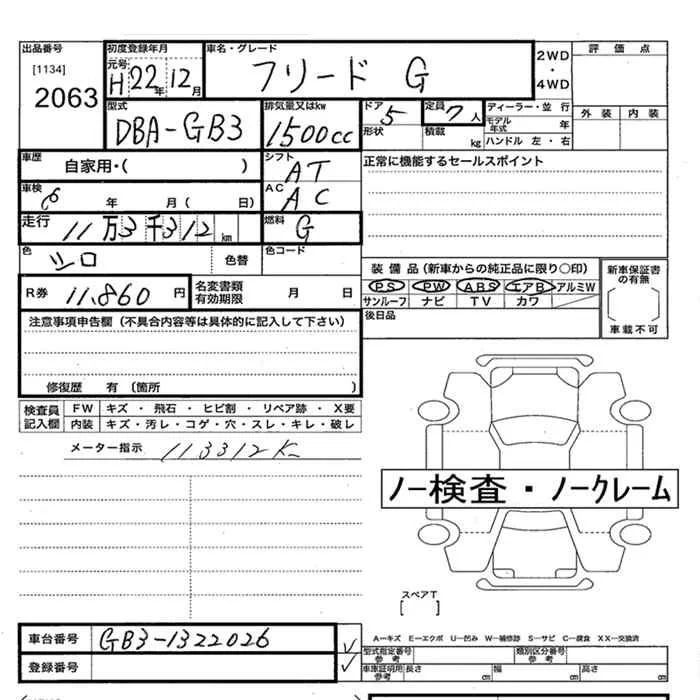 出品番号 初度登録年月 車名・グレード 2WD・4WD 評価点
[1134] 元号 H 22年 12月 フリード G
2063 外装 内装
型式 排気量又はkw ドア 5 定員 7人 ディーラー・並行
DBA-GB3 1500cc 形状 積載 kg モデル年式 年
ハンドル 左・右
車歴 自家用・( ) シフト AT 正常に機能するセールスポイント
車検 年 月( 日) AC AC
走行 11万3千312km 燃料 G
色 シロ 色替 色コード
装備品(新車からの純正品に限り○印) 新車保証書の有無
R券 11,860円 名変書類有効期限 月 日 PS PW ABS エアB アルミW
サンルーフ ナビ TV カワ
注意事項申告欄(不具合内容等は具体的に記入して下さい) 後日品 車載不可
修復歴 有(箇所 )
検査員記入欄 FW キズ・飛石・ヒビ割・リペア跡・X要
内装 キズ・汚レ・コゲ・穴・スレ・キレ・破レ
メーター指示 113312K
ノー検査・ノークレーム
スペアT
[ ]
車台番号 GB3-1322026 ✓ A―キズ E―エクボ U―凹み W―補修跡 S―サビ C―腐食 XX―交換済
型式指定番号参考 類別区分番号参考
登録番号 ✓ 車庫証明用参考 長さ cm 幅 cm 高さ cm